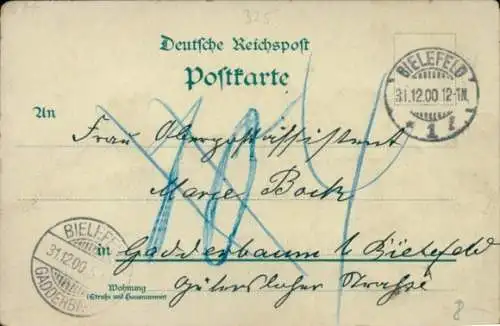 325
Deutsche Reichspost
Postkarte
BIELEFELD
31.12.00 12-1N.
* 1 f
An
Frau Oberpostassistent
Marie Bock
in Gadderbaum b/Bielefeld
Gütersloher Strasse
Wohnung
(Straße und Hausnummer)
BIELEF
31.12.00
GADDERB
10
8